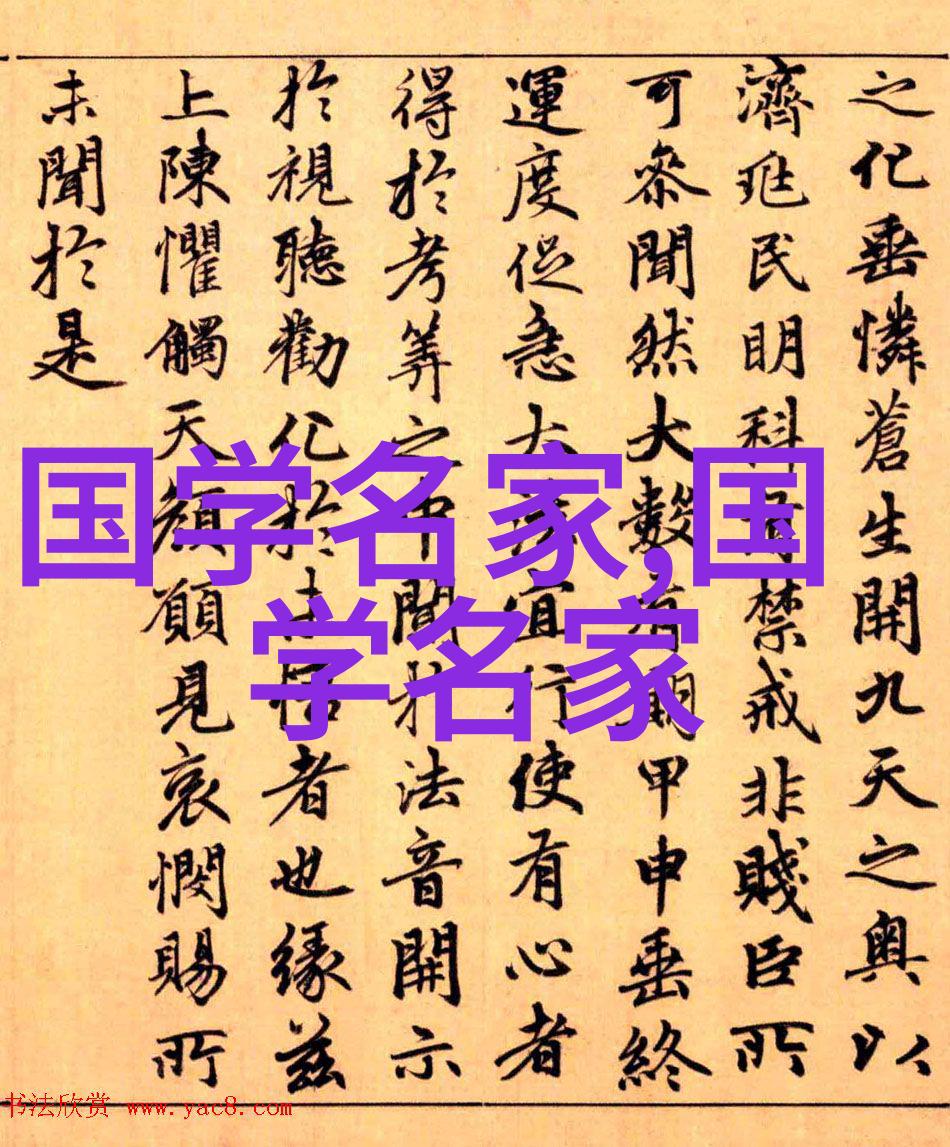 之化垂憐蒼生開九天之奧以
濟兆民明科有禁戒非賤臣所
可叅聞然大數有期甲申垂終
運度促急大法宜行使有心者
得於考筭之中聞於法音開示
於視聽勸化於未悟者也緣茲
上陳懼觸天顏願見哀憫賜所
未聞於是
国学名家,国
学名家
书法欣赏 www.yac8.com